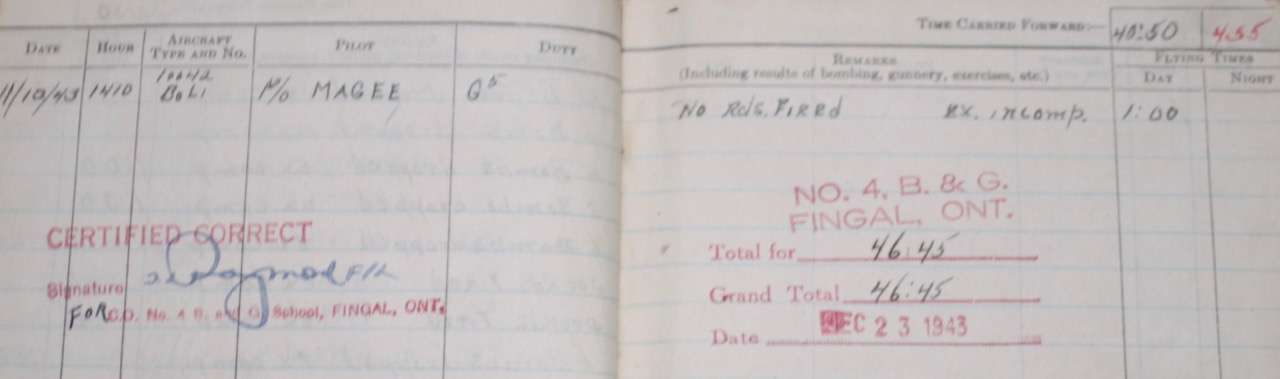 TIME CARRIED FORWARD:— 40:50 4:55
DATE HOUR AIRCRAFT TYPE AND NO. PILOT DUTY
REMARKS (Including results of bombing, gunnery, exercises, etc.) FLYING TIMES
DAY NIGHT
11/10/43 1410 10042 Boli P/O MAGEE G5 No Rds. Fired Ex. incomp. 1:00
CERTIFIED CORRECT
F/L
Signature
FOR C.O. No. 4 B. and G. School, FINGAL, ONT.
NO. 4, B. & G.
FINGAL, ONT.
Total for 46:45
Grand Total 46:45
Date DEC 23 1943